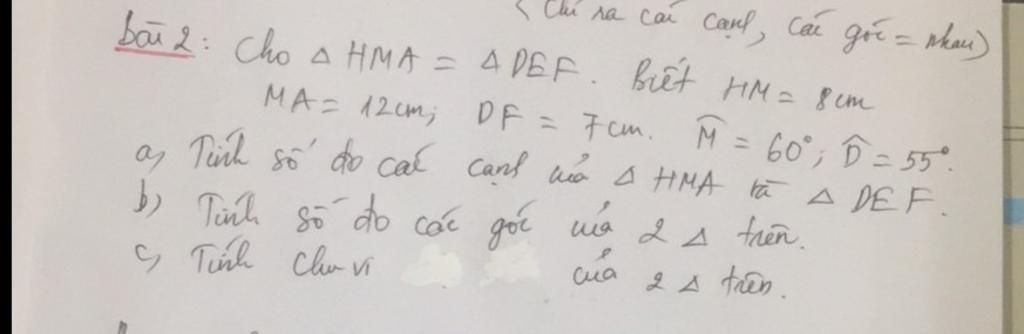 (Chỉ ra các cạnh, các góc = nhau)
Bài 2: Cho △ HMA = △ DEF. Biết HM = 8cm
MA = 12cm; DF = 7cm. M̂ = 60°; D̂ = 55°.
a, Tính số đo các cạnh của △ HMA và △ DEF.
b) Tính số đo các góc của 2 △ trên.
c, Tính chu vi của 2 △ trên.